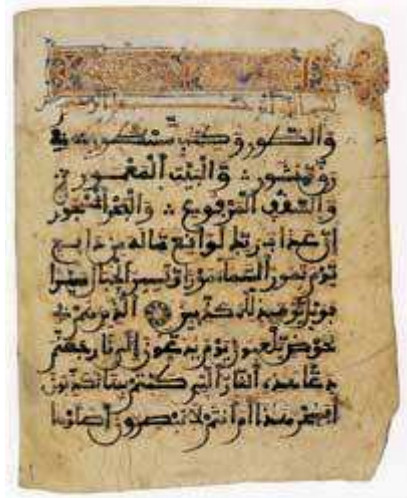 بسم الله الرحمن الرحيم
والطور وكتب مسطور في
رق منشور والبيت المعمور
والسقف المرفوع والبحر المسجور
إن عذاب ربك لوقع ما له من دافع
يوم تمور السماء مورا وتسير الجبال سيرا
فويل يومئذ للمكذبين الذين هم في
خوض يلعبون يوم يدعون إلى نار جهنم
دعا هذه النار التي كنتم بها تكذبون
أفسحر هذا أم أنتم لا تبصرون اصلوها